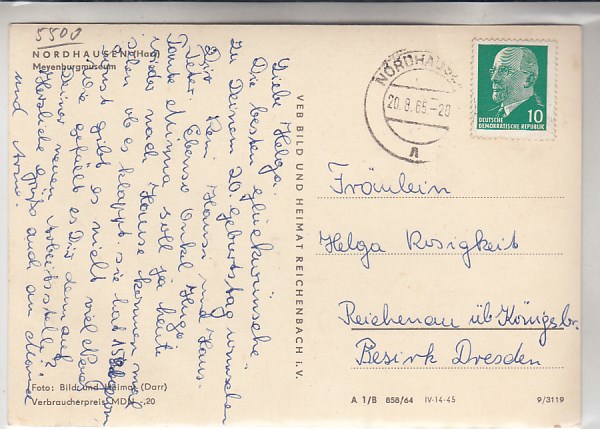 5500
NORDHAUSEN (Harz)
Meyenburgmuseum
Liebe Helga.
Die besten Glückwünsche
zu Deinem 20. Geburtstag wünschen
Dir Reni, Hansi und Hans-
Peter. Ebenso Onkel Hugo.
Tante Minna soll ja heute
wieder nach Hause kommen, mal
sehen ob es klappt. sie hat
sonst gibt es nicht viel Neues
Wie gefällt es Dir denn auf
Deiner neuen Arbeitsstelle?
Herzliche Grüße auch an
und
Foto: Bild und Heimat (Darr)
Verbraucherpreis MDN -,20
VEB BILD UND HEIMAT REICHENBACH i. V.
NORDHAUSEN
20.8.65-20
n
10
DEUTSCHE
DEMOKRATISCHE REPUBLIK
Fräulein
Helga Rosigkeit
Reichenau üb. Königsbr.
Bezirk Dresden
A 1/B 858/64 IV-14-45
9/3119